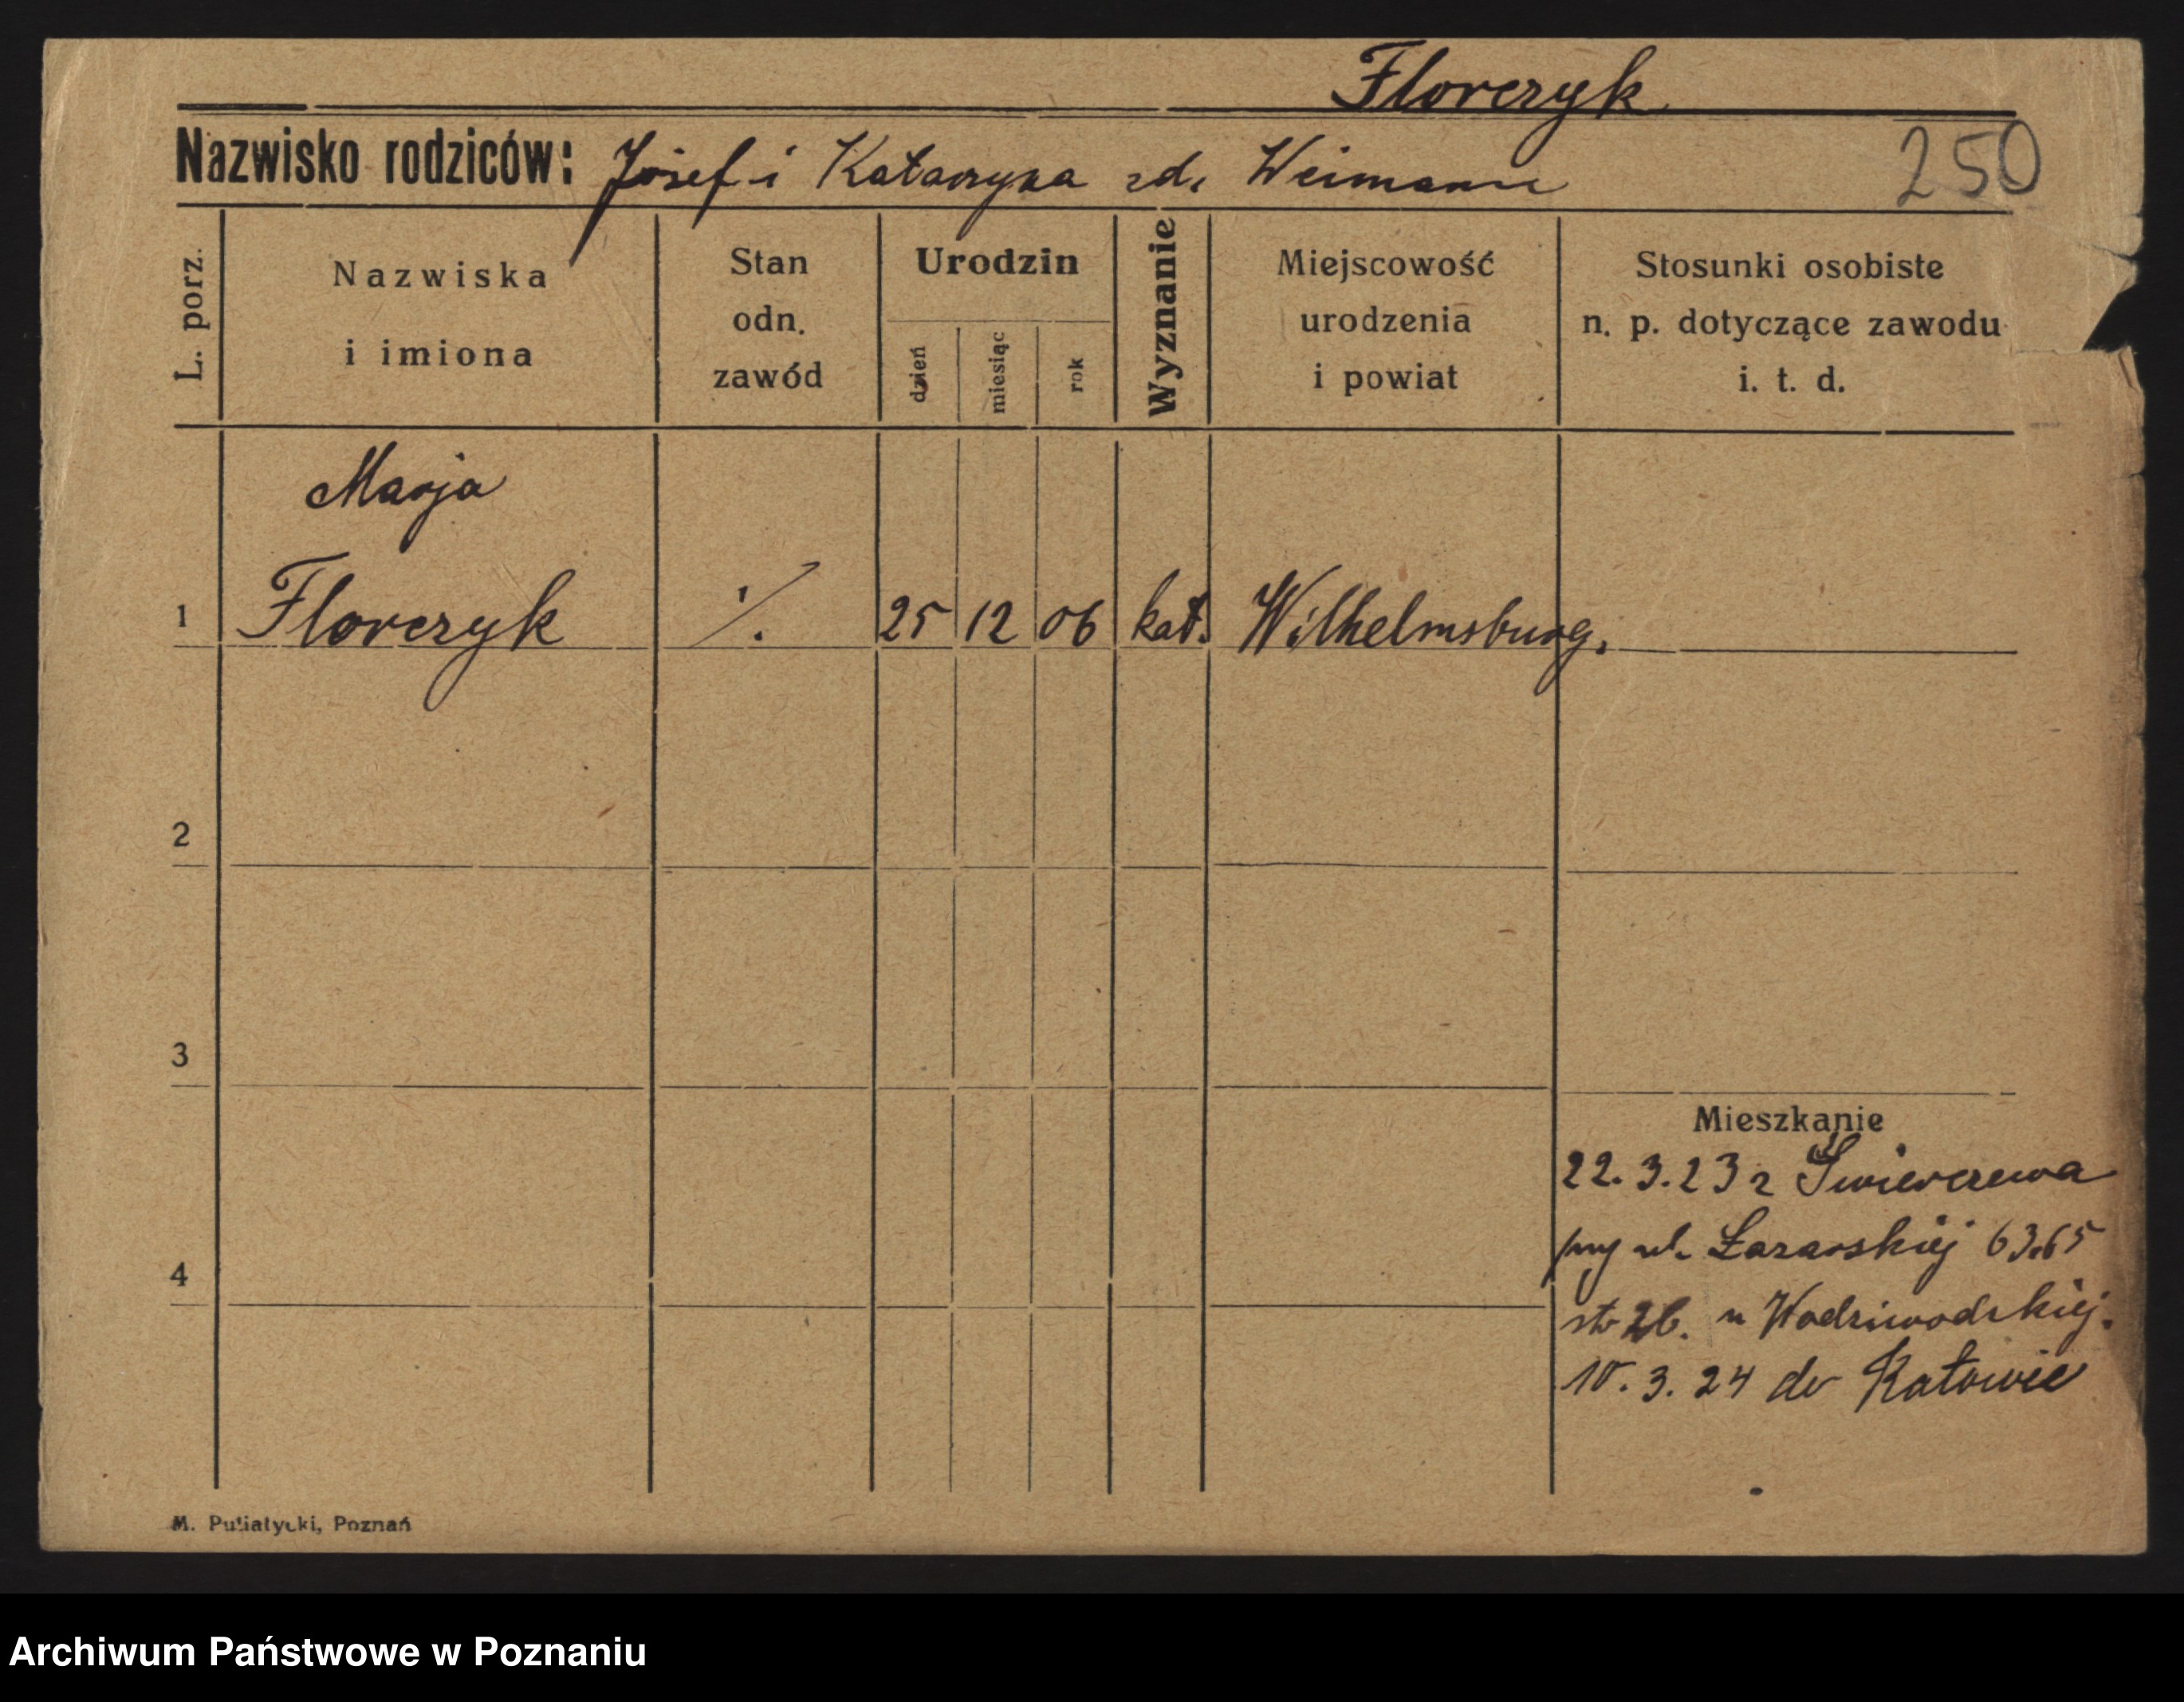 Florczyk
Nazwisko rodziców: Józef i Katarzyna zd. Weimann
250
L. porz.
Nazwiska
i imiona
Stan
odn.
zawód
Urodzin
dzień
miesiąc
rok
Wyznanie
Miejscowość
urodzenia
i powiat
Stosunki osobiste
n. p. dotyczące zawodu
i. t. d.
Marja
1 Florczyk ./. 25 12 06 kat. Wilhelmsburg.
2
3
Mieszkanie
22.3.23 z Świerczewa
przy ul. Łazarskiej 63.65
4
str 26. u Wodziwodzkiej.
10.3.24 do Katowic
M. Putiatycki, Poznań
Archiwum Państwowe w Poznaniu